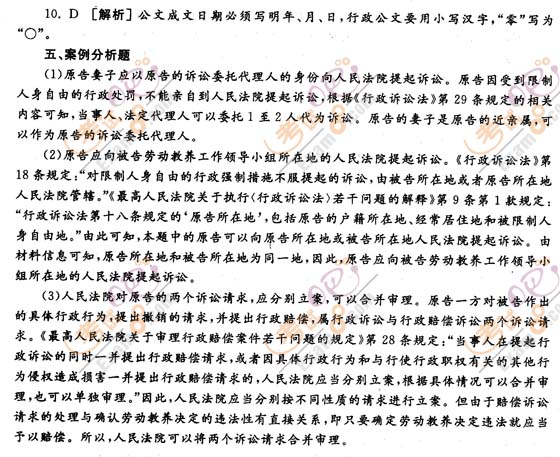 10. D [解析]公文成文日期必须写明年、月、日,行政公文要用小写汉字,“零”写为
“〇”。
五、案例分析题
(1)原告妻子应以原告的诉讼委托代理人的身份向人民法院提起诉讼。原告因受到限制
人身自由的行政处罚,不能亲自到人民法院提起诉讼,根据《行政诉讼法》第29条规定的相关
内容可知,当事人、法定代理人可以委托1至2人代为诉讼。原告的妻子是原告的近亲属,可
以作为原告的诉讼委托代理人。
(2)原告应向被告劳动教养工作领导小组所在地的人民法院提起诉讼。《行政诉讼法》第
18条规定:“对限制人身自由的行政强制措施不服提起的诉讼,由被告所在地或者原告所在地
人民法院管辖。”《最高人民法院关于执行〈行政诉讼法〉若干问题的解释》第9条第1款规定:
“行政诉讼法第十八条规定的‘原告所在地’,包括原告的户籍所在地、经常居住地和被限制人
身自由地。”由此可知,本题中的原告可以向原告所在地或被告所在地人民法院提起诉讼。由
材料信息可知,原告所在地和被告所在地为同一地,因此,原告应向被告劳动教养工作领导小
组所在地的人民法院提起诉讼。
(3)人民法院对原告的两个诉讼请求,应分别立案,可以合并审理。原告一方对被告作出
的具体行政行为,提出撤销的请求,并提出行政赔偿,属行政诉讼与行政赔偿诉讼两个诉讼请
求。《最高人民法院关于审理行政赔偿案件若干问题的规定》第28条规定:“当事人在提起行
政诉讼的同时一并提出行政赔偿请求,或者因具体行政行为和与行使行政职权有关的其他行
为侵权造成损害一并提出行政赔偿请求的,人民法院应当分别立案,根据具体情况可以合并审
理,也可以单独审理。”因此,人民法院应当分别按不同性质的请求进行立案。但由于赔偿诉讼
请求的处理与确认劳动教养决定的违法性有直接关系,即只要确定劳动教养决定违法就应当
予以赔偿。所以,人民法院可以将两个诉讼请求合并审理。